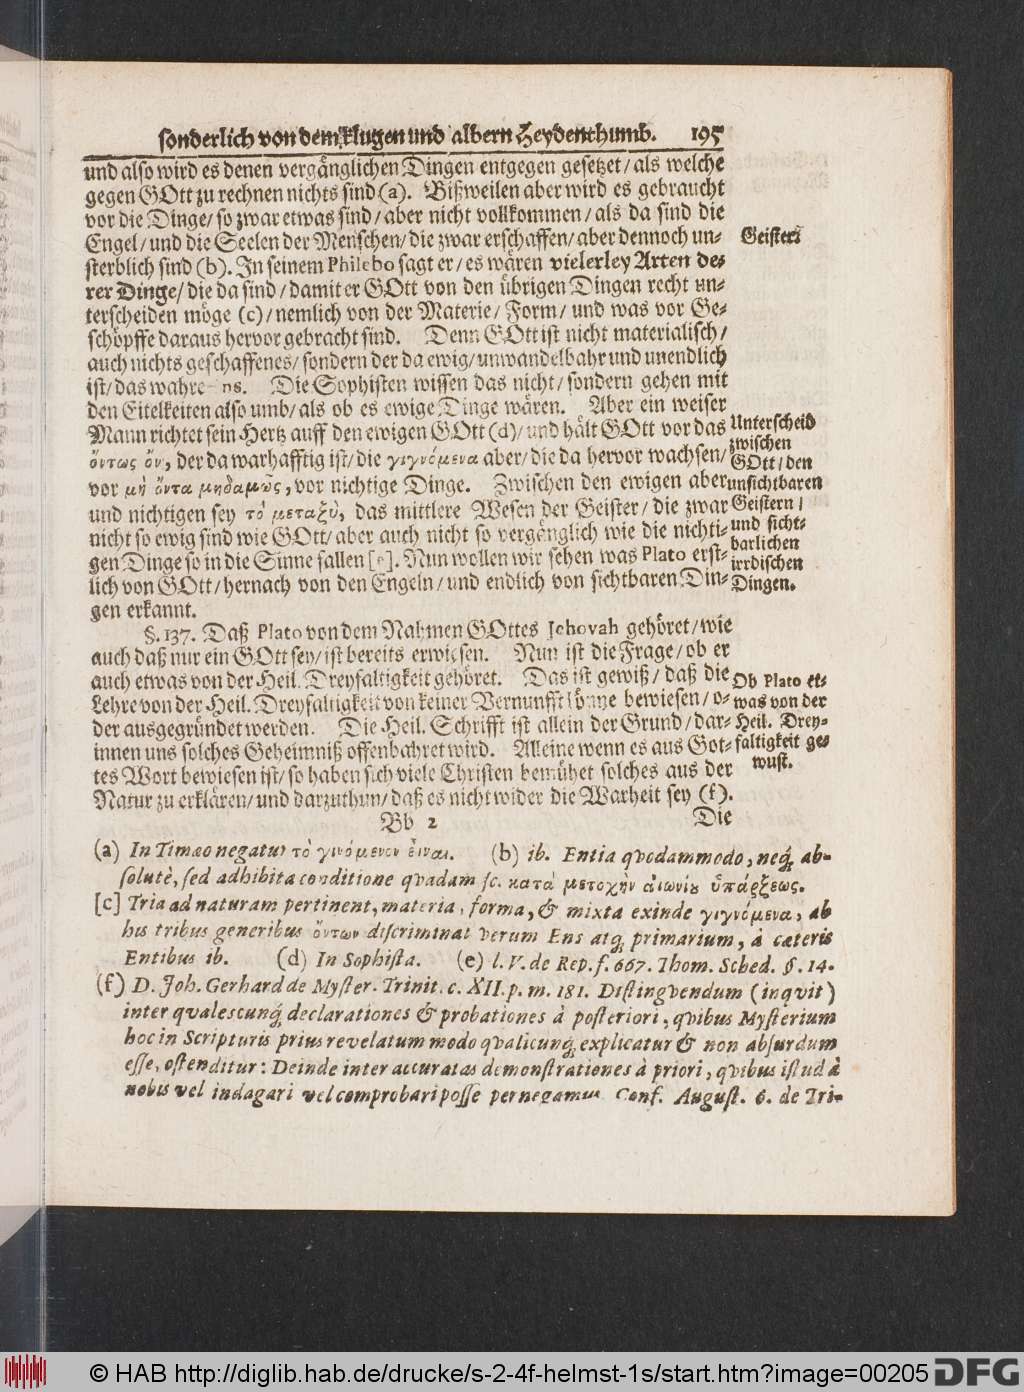 sonderlich von dem klugen und albern Heydenthumb. 195
und also wird es denen vergänglichen Dingen entgegen gesetzet / als welche
gegen GOtt zu rechnen nichts sind (a). Bißweilen aber wird es gebraucht
vor die Dinge / so zwar etwas sind / aber nicht vollkommen / als da sind die
Engel / und die Seelen der Menschen / die zwar erschaffen / aber dennoch un-
Geister.
sterblich sind (b). In seinem Philebo sagt er / es wären vielerley Arten de-
rer Dinge / die da sind / damit er GOtt von den übrigen Dingen recht un-
terscheiden möge (c) / nemlich von der Materie / Form / und was vor Ge-
schöpffe daraus hervor gebracht sind. Denn GOtt ist nicht materialisch /
auch nichts geschaffenes / sondern der da ewig / unwandelbahr und unendlich
ist / das wahre ns. Die Sophisten wissen das nicht / sondern gehen mit
den Eitelkeiten also umb / als ob es ewige Dinge wären. Aber ein weiser
Mann richtet sein Hertz auff den ewigen GOtt (d) / und hält GOtt vor das
ὄντως ὄν, der da warhafftig ist / die γιγνόμενα aber / die da hervor wachsen /
vor μὴ ὄντα μηδαμῶς, vor nichtige Dinge. Zwischen den ewigen aber
und nichtigen sey τὸ μεταξὺ, das mittlere Wesen der Geister / die zwar
nicht so ewig sind wie GOtt / aber auch nicht so vergänglich wie die nichti-
gen Dinge so in die Sinne fallen [e]. Nun wollen wir sehen was Plato erst-
lich von GOtt / hernach von den Engeln / und endlich von sichtbaren Din-
gen erkannt.
Unterscheid
zwischen
GOtt / den
unsichtbaren
Geistern /
und sicht-
barlichen
irrdischen
Dingen.
§. 137. Daß Plato von dem Nahmen GOttes Jehovah gehöret / wie
auch daß nur ein GOtt sey / ist bereits erwiesen. Nun ist die Frage / ob er
auch etwas von der Heil. Dreyfaltigkeit gehöret. Das ist gewiß / daß die
Lehre von der Heil. Dreyfaltigkeit von keiner Vernunfft könne bewiesen / o-
der ausgegründet werden. Die Heil. Schrifft ist allein der Grund / dar-
innen uns solches Geheimniß offenbahret wird. Alleine wenn es aus Got-
tes Wort bewiesen ist / so haben sich viele Christen bemühet solches aus der
Natur zu erklären / und darzuthun / daß es nicht wider die Warheit sey (f).
Ob Plato et-
was von der
Heil. Drey-
faltigkeit ge-
wust.
Bb 2 Die
(a) In Timæo negatur τὸ γινόμενον εἶναι. (b) ib. Entia qvodammodo, neq; ab-
solutè, sed adhibita conditione qvadam sc. κατὰ μετοχὴν αἰωνίου ὑπάρξεως.
[c] Tria ad naturam pertinent, materia, forma, & mixta exinde γιγνόμενα, ab
his tribus generibus ὄντων discriminat verum Ens atq; primarium, à cæteris
Entibus ib. (d) In Sophista. (e) l. V. de Rep. f. 667. Thom. Sched. §. 14.
(f) D. Joh. Gerhard de Myster. Trinit. c. XII. p. m. 181. Distingvendum (inqvit)
inter qvalescunq; declarationes & probationes à posteriori, qvibus Mysterium
hoc in Scripturis prius revelatum modo qvalicunq; explicatur & non absurdum
esse, ostenditur: Deinde inter accuratas demonstrationes à priori, qvibus istud à
nobis vel indagari vel comprobari posse pernegamus. Conf. August. 6. de Tri-
© HAB http://diglib.hab.de/drucke/s-2-4f-helmst-1s/start.htm?image=00205 DFG